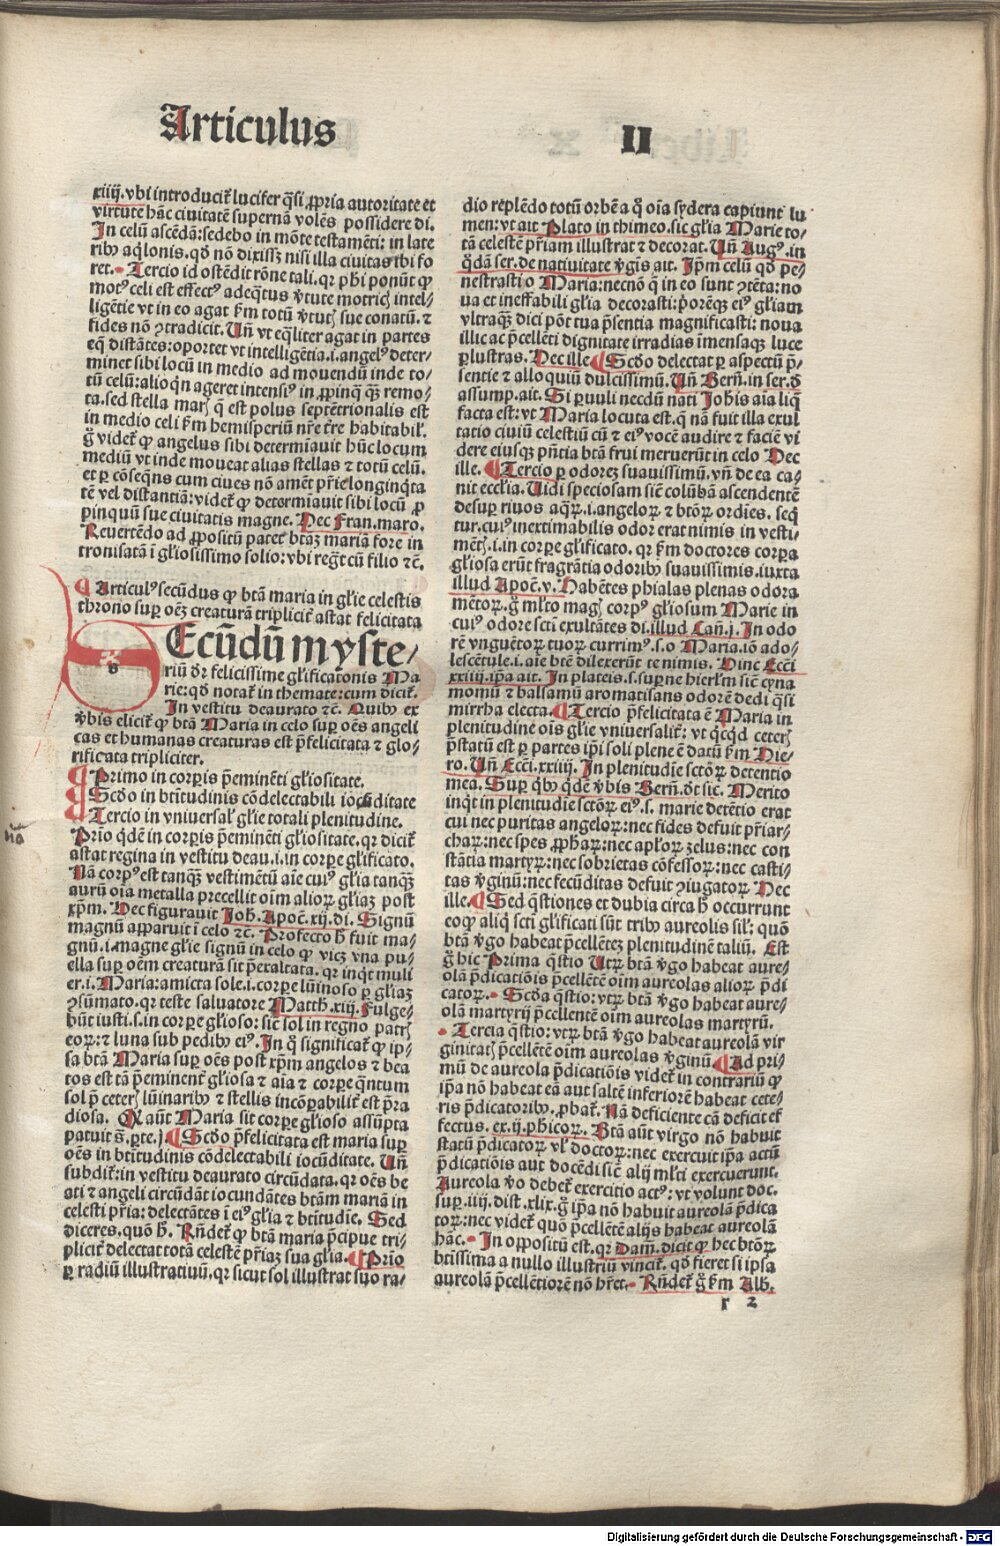 Articulus
II
xiiij. vbi introducit̃ lucifer q̃si ꝓpria autoritate et
virtute hãc ciuitatẽ supernã volẽs possidere di.
In celũ ascẽdã: sedebo in mõte testamẽti: in late
ribꝰ aq̃lonis. qđ nõ dixissꝫ nisi illa ciuitas ibi fo
ret. Tercio id ostẽdit rõne tali. qꝛ phi ponũt ꝙ
motꝰ celi est effectꝰ adeq̃tus v̓tute motricꝭ intel/
ligẽtie vt in eo agat ẜm totũ v̓tutꝭ sue conatũ. ⁊
fides nõ ↄtradicit. Uñ vt eq̃liter agat in partes
eq̃ distãtes: oportet vt intelligẽtia .i. angelꝰ deter/
minet sibi locũ in medio ad mouendũ inde to/
tũ celũ: alioq̃n ageret intensiꝰ in ꝓpinqͥ q̈ꝫ remo/
ta. sed stella marꝭ q̃ est polus septẽtrionalis est
in medio celi ẜm hemisperiũ nr̃e tr̃e habitabil̓.
g̊ videt̃ ꝙ angelus sibi determiauit hũc locum
mediũ vt inde moueat alias stellas ⁊ totũ celũ.
et ꝑ cõseq̃ns cum ciues nõ amẽt pr̃ie longinq̃ta
tẽ vel distantiã: videt̃ ꝙ determiauit sibi locũ ꝓ
pinquũ sue ciuitatis magne. Hec Fran. maro.
Reuertẽdo ad ꝓpositũ patet btãꝫ mariã fore in
tronisatã ĩ gl̓iosissimo solio: vbi reg̃t cũ filio ⁊c̃.
¶ Articulꝰ secũdus ꝙ btã maria in gl̓ie celestis
throno suꝑ oẽꝫ creaturã triplicit̃ astat felicitata
s
Ecũdũ myste/
riũ dr̃ felicissime gl̓ificatõnis Ma
rie: qđ notat̃ in themate: cum dicit̃.
In vestitu deaurato ⁊c̃. Quibꝰ ex
v̓bis elicit̃ ꝙ btã Maria in celo suꝑ oẽs angeli
cas et humanas creaturas est p̃felicitata ⁊ glo/
rificata tripliciter.
¶ Primo in corꝑis p̃eminẽti gl̓iositate.
¶ Scđo in btĩtudinis cõdelectabili iocũditate
¶ Tercio in vniuersal̓ gl̓ie totali plenitudine.
Prĩo q̃dẽ in corꝑis p̃eminẽti gl̓iositate. qꝛ dicit̃
astat regina in vestitu deau. i. in corꝑe gl̓ificato.
Nã corpꝰ est tanq̈ꝫ vestimẽtũ aĩe cuiꝰ gl̓ia tanq̈ꝫ
aurũ oĩa metalla precellit oĩm alioꝝ gl̓iaꝫ post
xp̃m. Hec figurauit Joh. Apoc̃. xij. di. Signũ
magnũ apparuit ĩ celo ⁊c̃. Profecto h̃ fuit ma/
gnũ .i. magne gl̓ie signũ in celo ꝙ vicꝫ vna pu/
ella suꝑ oẽm creaturã sit p̃exaltata. qꝛ inqͥt muli
er .i. Maria: amicta sole .i. corꝑe lũinoso ꝑ gl̓iaꝫ
ↄsũmato. qꝛ teste saluatore Matth. xiij. Fulge/
bũt iusti .s. in corꝑe gl̓ioso: sic̃ sol in regno patrꝭ
eoꝝ: ⁊ luna sub pedibꝰ eiꝰ. In q̊ significat̃ ꝙ ip/
sa btã Maria suꝑ oẽs post xp̃m angelos ⁊ bea
tos est tã p̃eminent̃ gl̓iosa ⁊ aĩa ⁊ corꝑe q̃ntum
sol p̃ ceterꝭ lũinaribꝰ ⁊ stellis incõꝑabilit̃ est p̃ra
diosa. Q̃ aũt Maria sit corꝑe gl̓ioso assũpta
patuit s̃. ꝑte. j. ¶ Scđo p̃felicitata est maria suꝑ
oẽs in btĩtudinis cõdelectabili iocũditate. Uñ
subdit̃: in vestitu deaurato circũdata. qꝛ oẽs be
ati ⁊ angeli circũdãt iocundãtes btãm mariã in
celesti pr̃ia: delectãtes ĩ eiꝰ gl̓ia ⁊ btĩtudĩe. Sed
diceres. quõ h̃. Rñdet̃ ꝙ btã maria p̃cipue tri/
plicit̃ delectat totã celestẽ pr̃iaꝫ sua gl̓ia. ¶ Prĩo
ꝑ radiũ illustratiuũ. qꝛ sicut sol illustrat suo ra/
dio replẽdo totũ orbẽ a q̊ oĩa sydera capiunt lu
men: vt ait Plato in thimeo. sic gl̓ia Marie to/
tã celestẽ pr̃iam illustrat ⁊ decorat. Uñ Augꝰ. in
q̊dã ser. de natiuitate v̓gĩs ait. Ip̃m celũ qđ pe/
nestrasti o Maria: necnõ q̃ in eo sunt ↄtẽta: no/
ua et ineffabili gl̓ia decorasti: ꝓoreꝫ eiꝰ gl̓iam
vltraq̈ꝫ dici põt tua p̃sentia magnificasti: noua
illic ac p̃cellẽti dignitate irradias ĩmensaqꝫ luce
ꝑlustras. Hec ille. ¶ Scđo delectat ꝑ aspectũ p̃/
sentie ⁊ alloquiũ dulcissimũ. Uñ Bern̄. in ser. đ
assump. ait. Si ꝑuuli necdũ nati Joh̃is aĩa liq̃
facta est: vt Maria locuta est. q̃ nã fuit illa exul
tatio ciuiũ celestiũ cũ ⁊ eiꝰ vocẽ audire ⁊ faciẽ vi
dere eiusqꝫ p̃ntia btã frui meruerũt in celo Hec
ille. ¶ Tercio ꝑ odoreꝫ suauissimũ. vñ de ea ca/
nit eccl̓ia. Uidi speciosam sic̃ colũbã ascendentẽ
desuꝑ riuos aq̃ꝝ .i. angeloꝝ ⁊ btõꝝ ordĩes. seq̃
tur. cuiꝰ inextimabilis odor erat nimis in vesti/
mẽtꝭ .i. in corꝑe gl̓ificato. qꝛ ẜm doctores corꝑa
gl̓iosa erũt fragrãtia odoribꝰ suauissimis. iuxta
illud Apoc̃. v. Habẽtes phialas plenas odora
mẽtoꝝ. g̊ ml̓to magꝭ corpꝰ gl̓iosum Marie in
cuiꝰ odore scti exultãtes di. illud Cañ. j. In odo
rẽ vnguẽtoꝝ tuoꝝ currimꝰ. s. o Maria. iõ ado/
lescẽtule .i. aĩe btẽ dilexerũt te nimis. Hinc Eccĩ
xxiiij. ip̃a ait. In plateis .s. suꝑne hierl̓m sic̃ cyna
momũ ⁊ balsamũ aromatisans odorẽ dedi q̃si
mirrha electa. ¶ Tercio p̃felicitata ẽ Maria in
plenitudine oĩs gl̓ie vniuersalit̃: vt qͥcqͥd ceterꝭ
p̃statũ est ꝑ partes ip̃i soli plene ẽ datũ ẜm Hie/
ro. Uñ Eccĩ. xxiiij. In plenitudĩe sctõꝝ detentio
mea. Suꝑ qͥbꝰ q̃dẽ v̓bis Bern̄. đt sic̃. Merito
inqͥt in plenitudĩe sctõꝝ eiꝰ .s. marie detẽtio erat
cui nec puritas angeloꝝ: nec fides defuit pr̃iar/
chaꝝ: nec spes ꝓphaꝝ: nec apl̓oꝝ zelus: nec con
stãtia martyꝝ: nec sobrietas cõfessoꝝ: nec casti/
tas v̓ginũ: nec fecũditas defuit ↄiugatoꝝ Hec
ille. ¶ Sed q̃stiones et dubia circa h̃ occurrunt
eoꝙ aliqͥ scti gl̓ificati sũt tribꝰ aureolis sil̓: quõ
btã v̓go habeat p̃cellẽteꝫ plenitudinẽ taliũ. Est
g̊ hic Prima q̃stio Utꝝ btã v̓go habeat aure/
olã p̃dicatiõis p̃cellẽtẽ oĩm aureolas alioꝝ p̃di
catoꝝ. Scđa q̃stio: vtꝝ btã v̓go habeat aure/
olã martyrij p̃cellentẽ oĩm aureolas martyrũ.
Tercia q̃stio: vtꝝ btã v̓go habeat aureolã vir
ginitatꝭ p̃cellẽtẽ oĩm aureolas v̓ginũ. ¶ Ad pri/
mũ de aureola p̃dicatiõis videt̃ in contrariũ ꝙ
ip̃a nõ habeat eã aut saltẽ inferiorẽ habeat cete/
ris p̃dicatoribꝰ. ꝓbat̃. Nã deficiente cã deficit ef
fectus. ex. ij. phicoꝝ. Btã aũt virgo nõ habuit
statũ p̃dicatoꝝ vl̓ doctoꝝ: nec exercuit ip̃a actũ
p̃dicatiõis aut docẽdi sic̃ alij ml̓ti exercuerunt.
Aureola v̓o debet̃ exercitio actꝰ: vt volunt doc.
suꝑ. iiij. dist. xlix. g̊ ip̃a nõ habuit aureolã p̃dica
toꝝ: nec videt̃ quõ p̃cellẽtẽ alijs habeat aureolã
hãc. In oppositũ est. qꝛ Dam̃. dicit ꝙ hec btõꝝ
btĩssima a nullo illustriũ vincit̃. qđ fieret si ipsa
aureolã p̃cellẽtiorẽ nõ hr̃et. Rñdet̃ g̊ ẜm Alb.
r 2
Digitalisierung gefördert durch die Deutsche Forschungsgemeinschaft - DFG